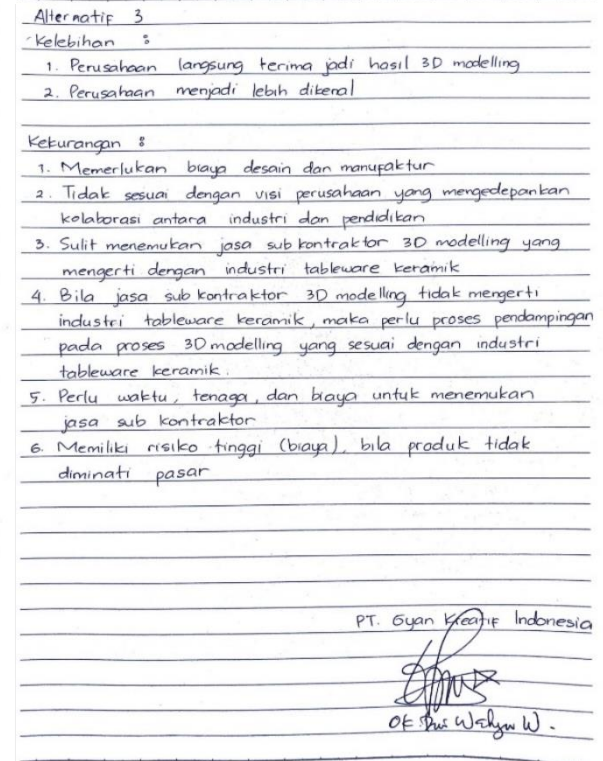 Alternatif 3
Kelebihan :
1. Perusahaan langsung terima jadi hasil 3D modelling
2. Perusahaan menjadi lebih dikenal
Kekurangan :
1. Memerlukan biaya desain dan manufaktur
2. Tidak sesuai dengan visi perusahaan yang mengedepankan
kolaborasi antara industri dan pendidikan
3. Sulit menemukan jasa sub kontraktor 3D modelling yang
mengerti dengan industri tableware keramik
4. Bila jasa sub kontraktor 3D modelling tidak mengerti
industri tableware keramik, maka perlu proses pendampingan
pada proses 3D modelling yang sesuai dengan industri
tableware keramik.
5. Perlu waktu, tenaga, dan biaya untuk menemukan
jasa sub kontraktor
6. Memiliki risiko tinggi (biaya), bila produk tidak
diminati pasar
PT. Gyan Kreatif Indonesia
Wahyu W.